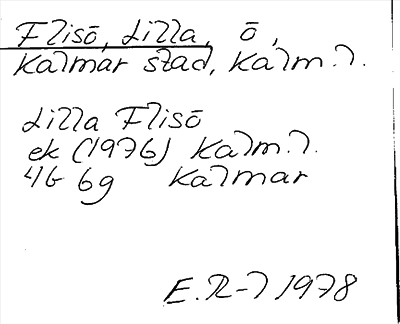 Flisö, Lilla, ö,
Kalmar stad, Kalm.l.
Lilla Flisö
ek (1976) Kalm.l.
4G 6g Kalmar
E.R-l 1978